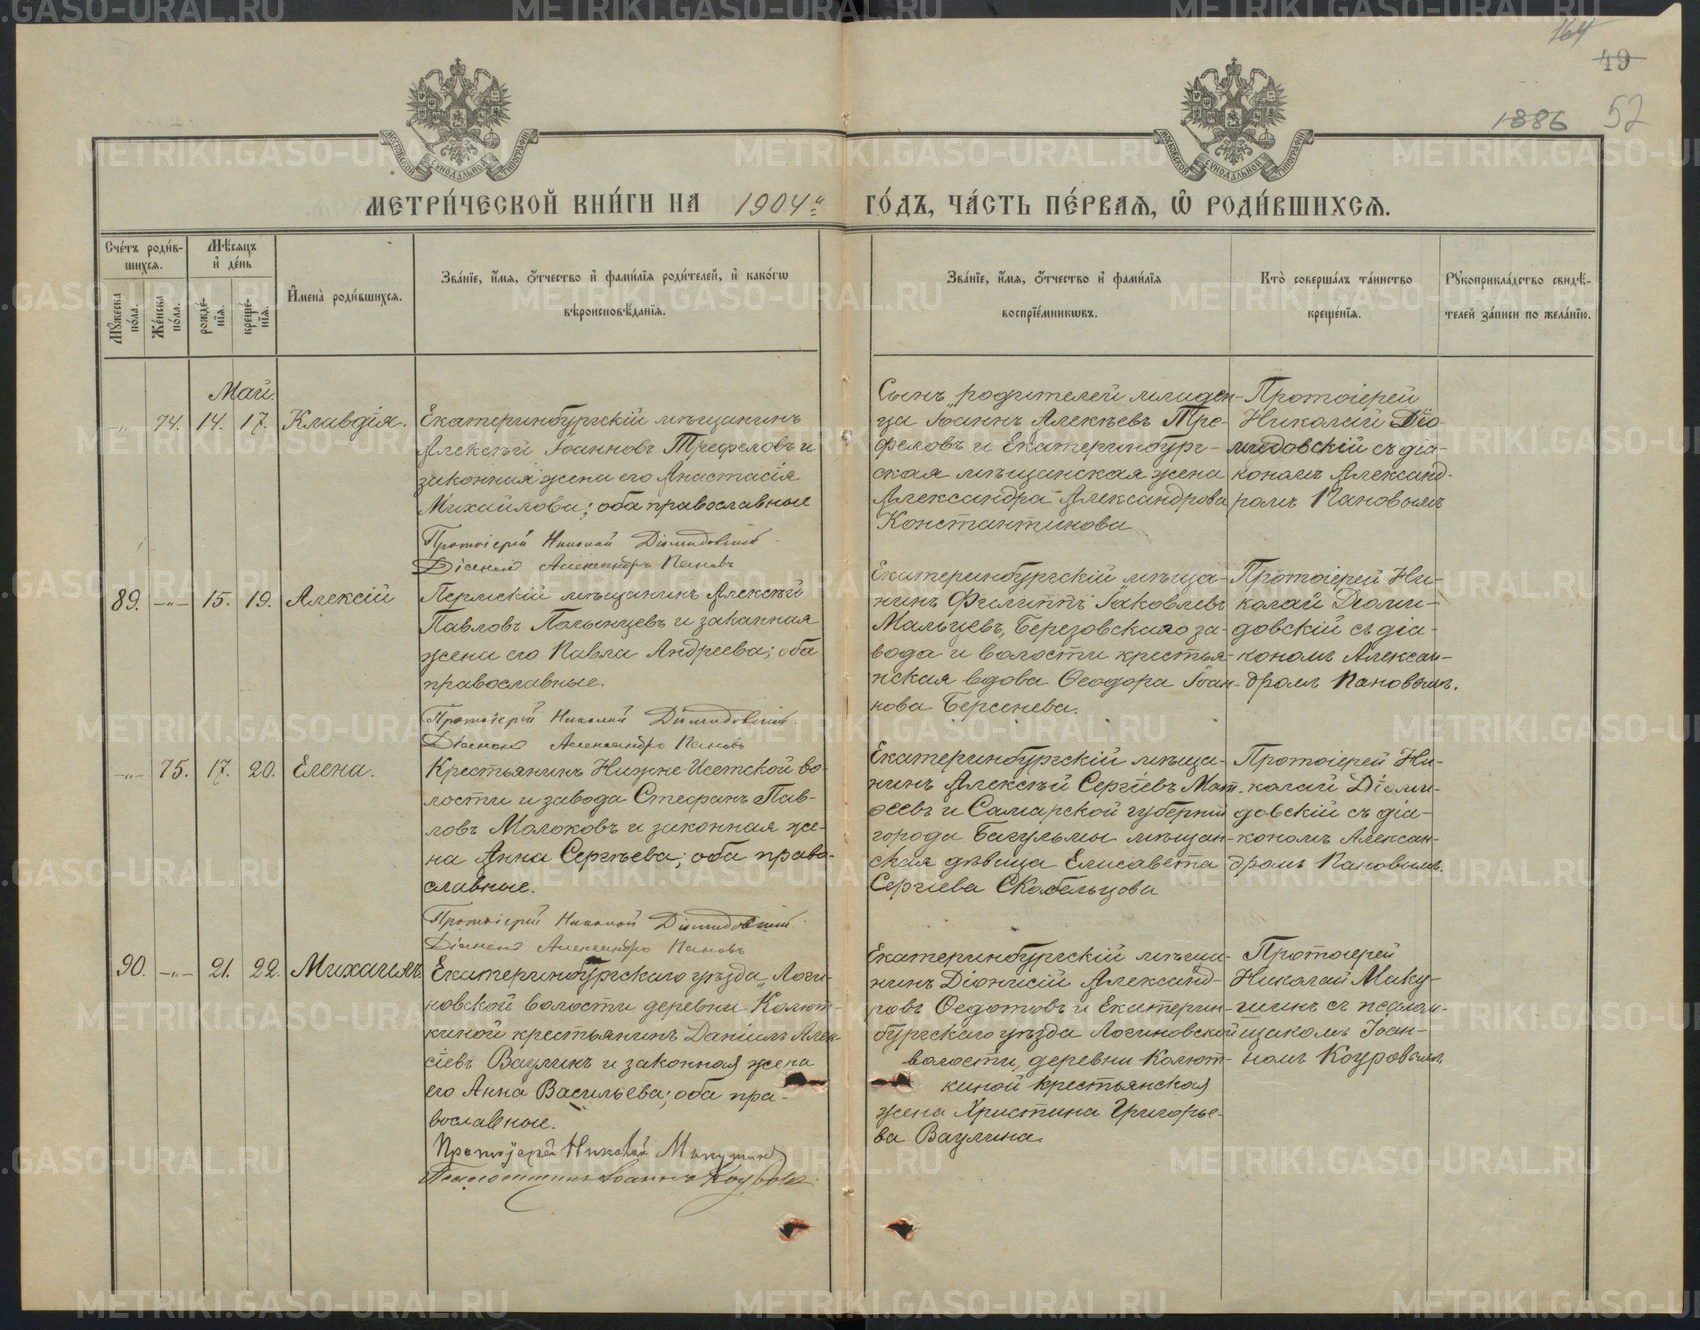 164
49
1886 52
МЕТРИ́ЧЕСКОЙ КНИ́ГИ НА 1904й ГО́ДЪ, ЧА́СТЬ ПЕ́РВАѦ, Ѽ РОДИ́ВШИХСѦ.
Сче́тъ роди́в-
шихсѧ.
Мѣ́сѧцъ
и҆ де́нь
Мꙋ́жеска по́ла.
Же́нска по́ла.
рожде́-
нїѧ.
креще́-
нїѧ.
И҆мена̀ роди́вшихсѧ.
Зва́нїе, и҆́мѧ, ѻ҆́тчество и҆ фами́лїѧ роди́телей, и҆ како́гѡ
вѣроисповѣ́данїѧ.
Зва́нїе, и҆́мѧ, ѻ҆́тчество и҆ фами́лїѧ
воспрїе́мникѡвъ.
Кто̀ соверша́лъ та́инство
креще́нїѧ.
Рꙋкоприкла́дство свидѣ́-
телей за́писи по жела́нїю.
Май.
-"- 74. 14. 17. Клавдія.
Екатеринбургскій мѣщанинъ
Алексѣй Іоанновъ Трефеловъ и
законная жена его Анастасія
Михайлова; оба православные
Протоіерей Николай Діомидовскій
Діаконъ Александръ Пановъ
Сынъ родителей младен-
ца Іоаннъ Алексѣевъ Тре-
феловъ и Екатеринбург-
ская мѣщанская жена
Александра Александрова
Константинова
Протоіерей
Николай Діо-
мидовскій съ діа-
кономъ Александ-
ромъ Пановымъ
89. -"- 15. 19. Алексій
Пермскій мѣщанинъ Алексѣй
Павловъ Полынцевъ и законная
жена его Павла Андреева; оба
православные.
Протоіерей Николай Діомидовскій
Діаконъ Александръ Пановъ
Екатеринбургскій мѣща-
нинъ Филиппъ Іаковлевъ
Мальцевъ, Березовскаго за-
вода и волости крестья-
нская вдова Ѳеодора Іоан-
нова Берсенева.
Протоіерей Ни-
колай Діоми-
довскій съ діа-
кономъ Алексан-
дромъ Пановымъ.
-"- 75. 17. 20. Елена.
Крестьянинъ Нижне-Исетской во-
лости и завода Стефанъ Пав-
ловъ Молоковъ и законная же-
на Анна Сергѣева; оба право-
славные.
Протоіерей Николай Діомидовскій
Діаконъ Александръ Пановъ
Екатеринбургскій мѣща-
нинъ Алексѣй Сергіевъ Мат-
ѳеевъ и Самарской губерніи
города Бугульмы мѣщан-
ская дѣвица Елисавета
Сергіева Скобельцова
Протоіерей Ни-
колай Діоми-
довскій съ діа-
кономъ Алексан-
дромъ Пановымъ.
90. -"- 21. 22. Михаилъ
Екатеринбургскаго уѣзда, Логи-
новской волости деревни Колют-
киной крестьянинъ Даніилъ Алек-
сіевъ Ваулинъ и законная жена
его Анна Васильева; оба пра-
вославные.
Протоіерей Николай Микушинъ
Псаломщикъ Іоаннъ Коуровъ
Екатеринбургскій мѣща-
нинъ Діонисій Александ-
ровъ Ѳедотовъ и Екатерин-
бургскаго уѣзда Логиновской
волости, деревни Колют-
киной крестьянская
жена Христина Григорье-
ва Ваулина.
Протоіерей
Николай Мику-
шинъ съ псалом-
щикомъ Іоан-
номъ Коуровымъ
METRIKI.GASO-URAL.RU